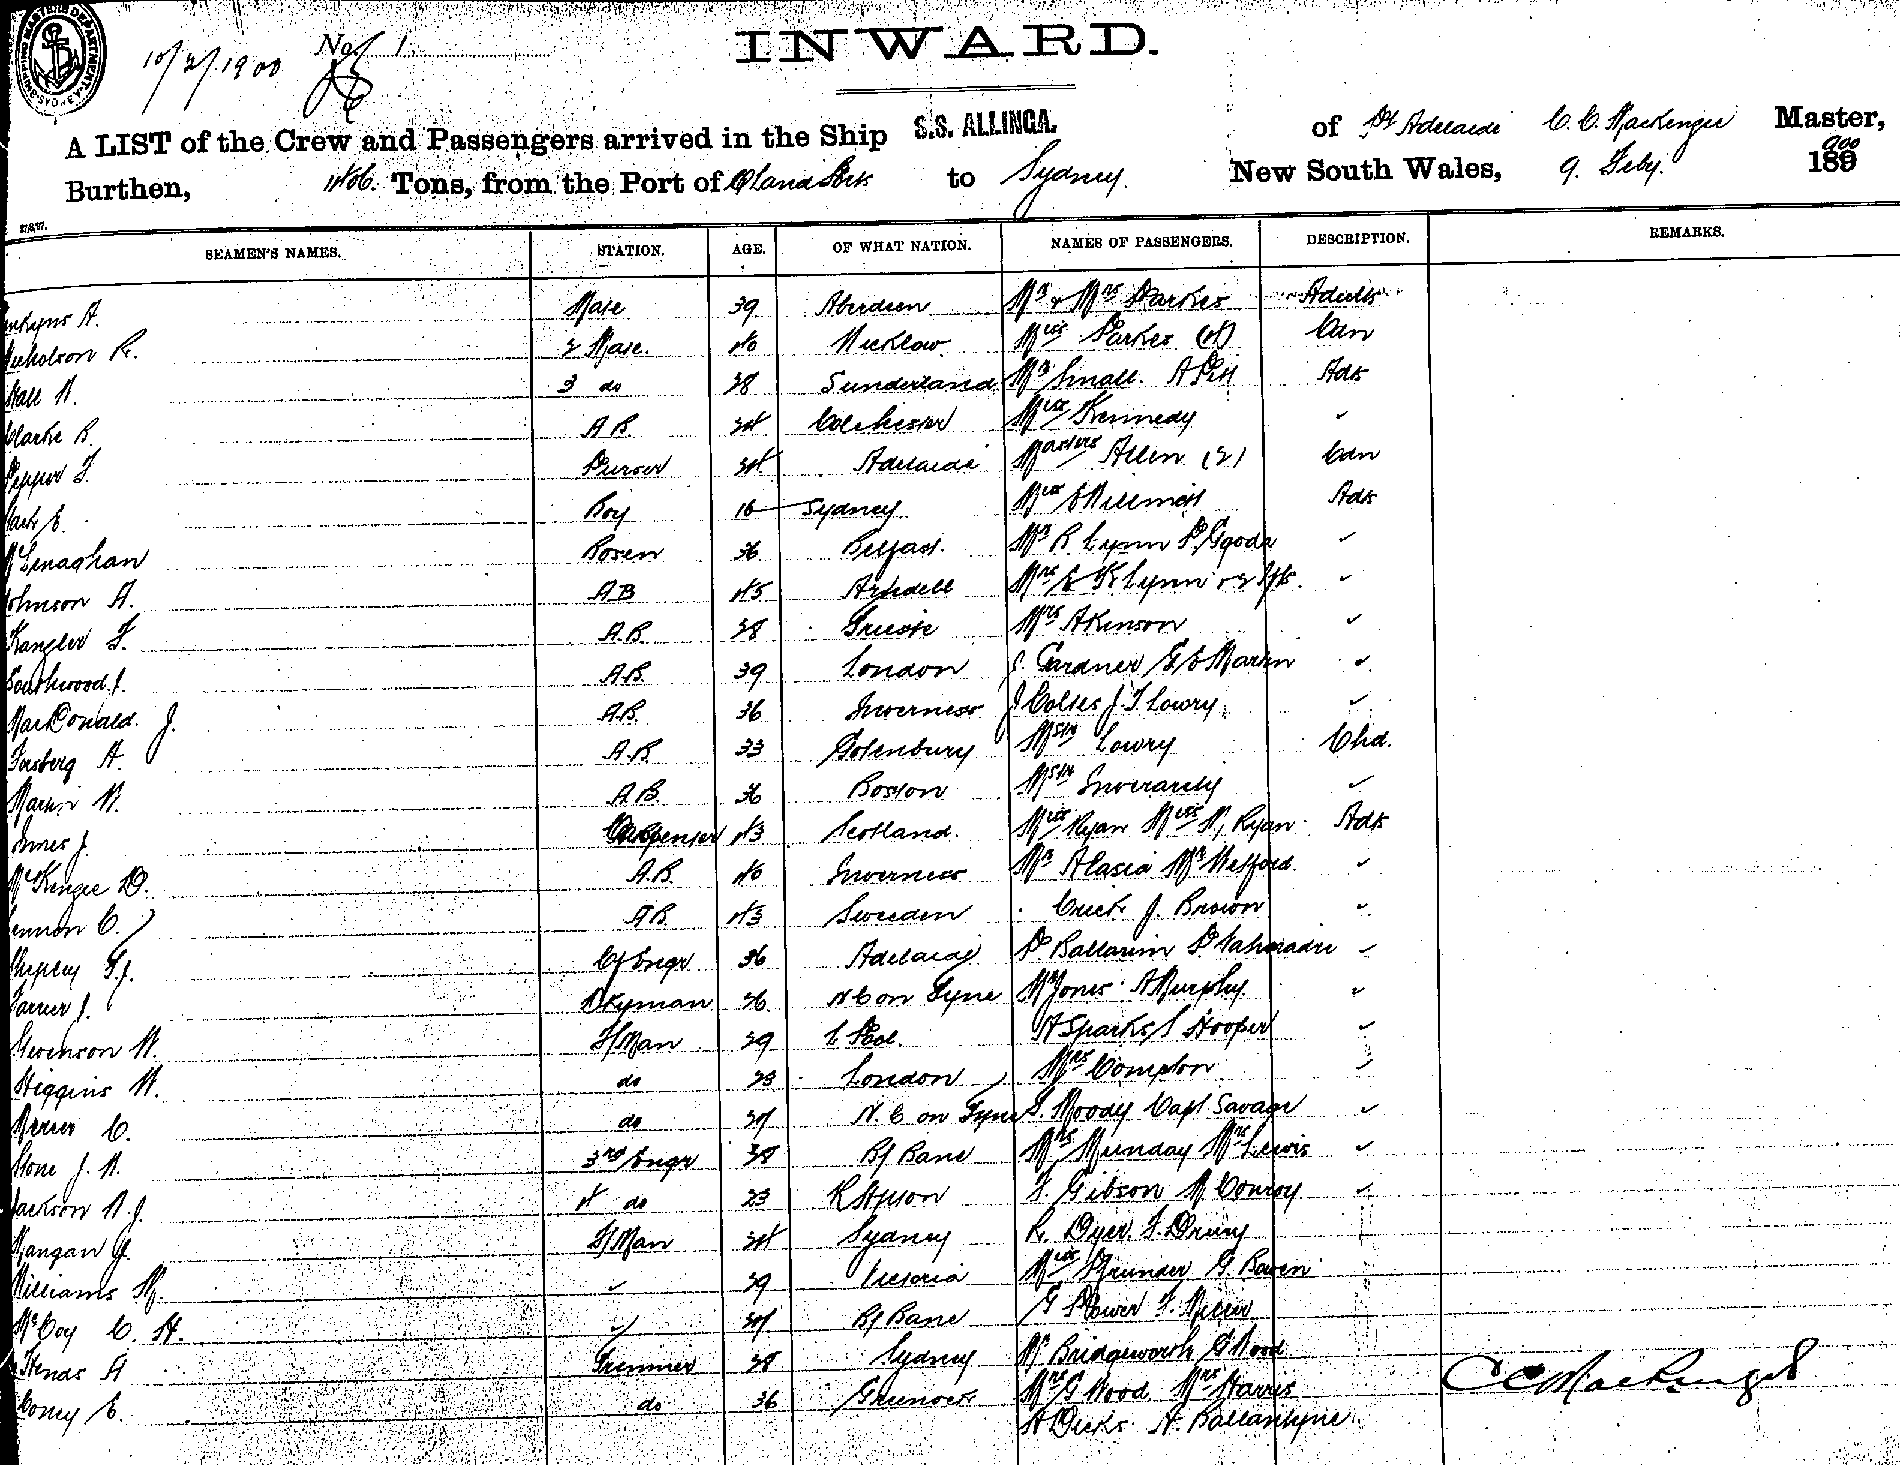 10/2/1900 No/ 1.
INWARD.
A LIST of the Crew and Passengers arrived in the Ship S.S. ALLINGA. of Pt Adelaide C. C. Mackenzie Master,
Burthen, Tons, from the Port of to Sydney. New South Wales, 9. Feby. 1900
SEAMEN'S NAMES. STATION. AGE. OF WHAT NATION. NAMES OF PASSENGERS. DESCRIPTION. REMARKS.
A. Mate 39 Aberdeen Mr & Mrs Parkes Adults
Nicholson R. 2 Mate. 40 Wicklow Miss Parkes (4) Cdn
Hall W. 3 do 28 Sunderland Mr Small. A Pitt Adts
Clarke B. A B. 24 Colchester Miss Kennedy "
Pepper F. Purser 24 Adelaide Masters Allen (2) Cdn
E. Boy 16 Sydney Miss Adts
McLenaghan Bosen 36 Belfast. Mr R. Lynn P. Goode "
Johnson A. AB 45 Arundell Mrs Lynn "
Kangler F. A.B. 28 Trieste Mrs Akinson "
Southwood J. A.B. 39 London J. Gardner G E Martin "
MacDonald. J. A.B. 36 Inverness J Coltes J. T Lowry "
Forsberg A. A.B 33 Gotenburg Mstr Lowry Chd.
Martin W. A.B. 36 Boston Mstr Inverarity "
Innes J. Carpenter 43 Scotland. Miss Ryan Miss M. Ryan Adts
McKenzie D. A.B. 40 Inverness Mr Alasia Mr Welford "
C. A B. 43 Sweden J. Brown "
Shepley F. J. C/ Engr 36 Adelaide P Ballarini "
Farrer J. Dkyman 26 N C on Tyne W Jones A Murphy "
Stevenson W. F/Man 29 L Pool. H Sparks S Hooper "
Higgins W. do 23 London Mrs Compton "
C. do N. C on Tyne S. Moody Capt Savage "
Stone J. W. 3rd Engr 28 B/ Bane Mrs Munday Mrs Lewis "
Jackson W. J. 4 do 23 F Gibson M Conroy "
Mangan J. F/Man 24 Sydney R. Dyer. F. Drury
Williams W. " 29 Victoria Miss G. Baven
McCoy C. H. " B/ Bane G Power F. Miller
Hends A Trimmer 28 Sydney W Bridgeworth G Wood
E. do 36 Greenock Mrs G Wood Mrs Harris
A Dicks A. Ballantyne
C C Mackenzie